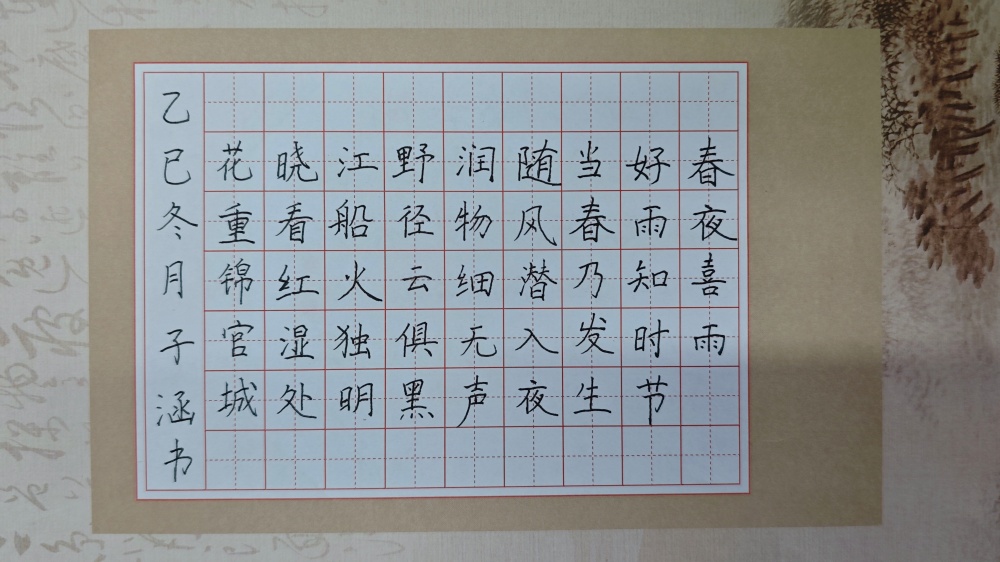 春夜喜雨
好雨知时节
当春乃发生
随风潜入夜
润物细无声
野径云俱黑
江船火独明
晓看红湿处
花重锦官城
乙巳冬月子涵书